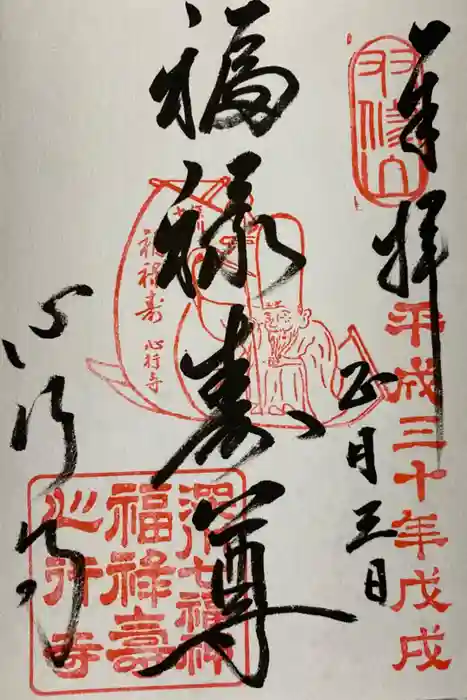 奉拝
平成三十年戊戌
正月三日
福禄寿尊
福禄寿
心行寺
心行寺
深川七福神
福禄寿
心行寺